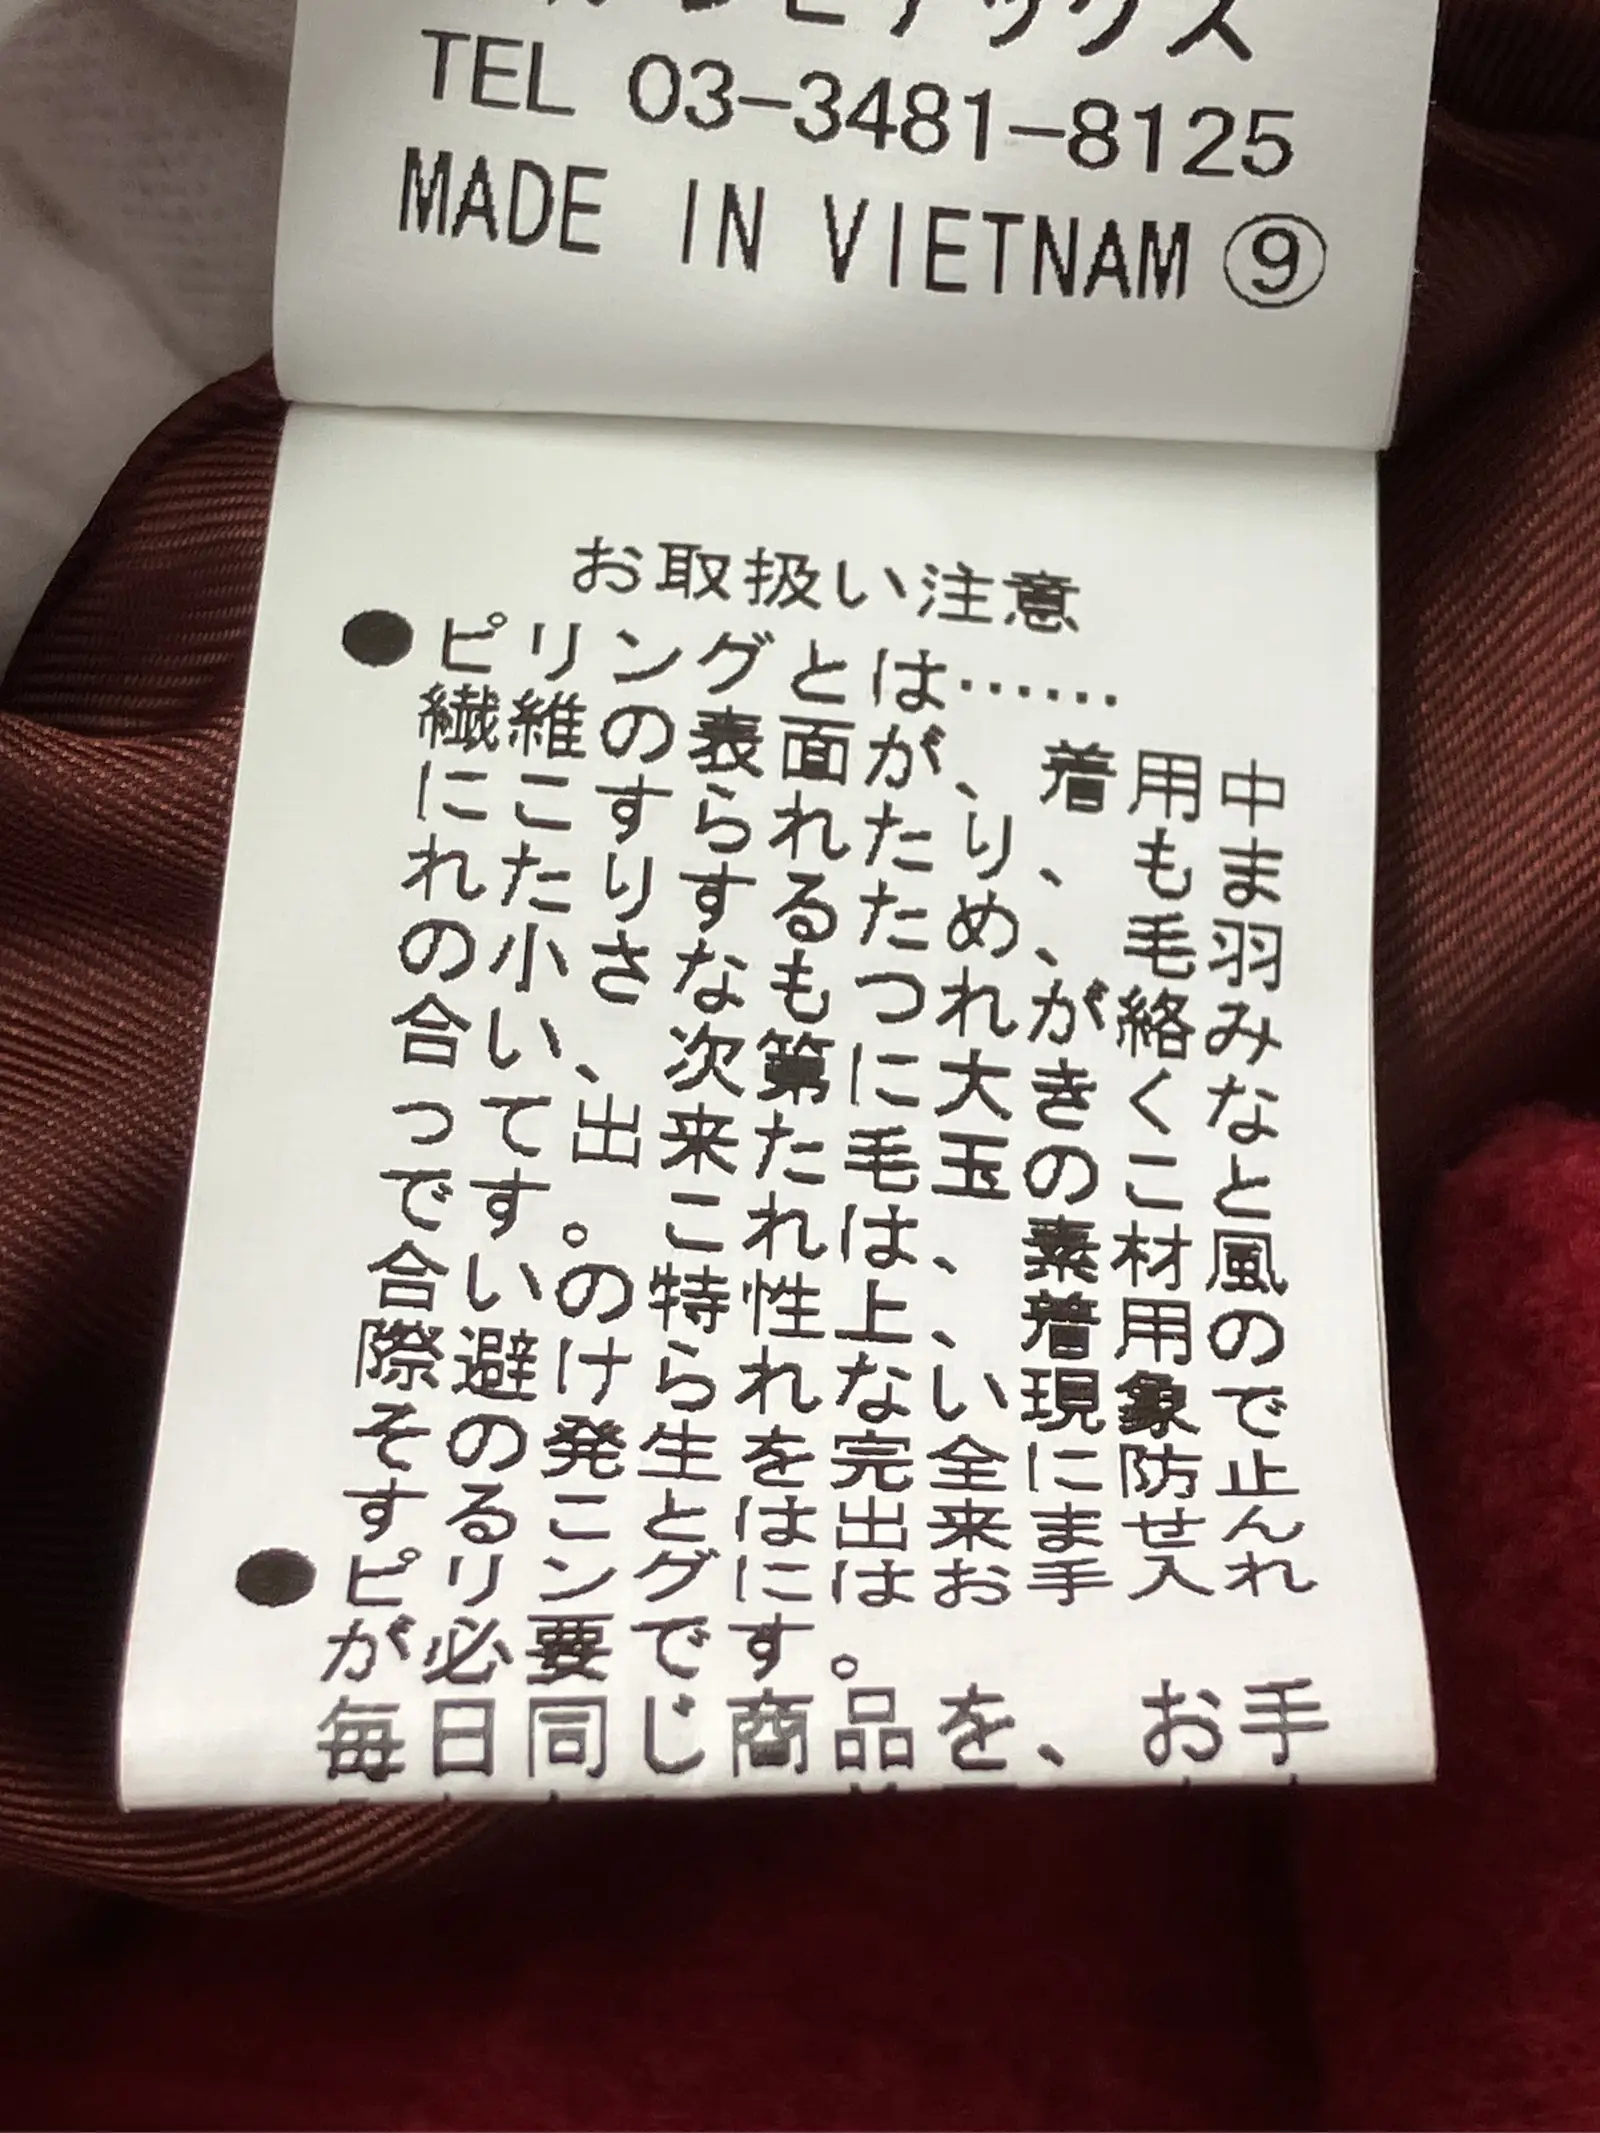 TEL 03-3481-8125
MADE IN VIETNAM ⑨
お取扱い注意
●ピリングとは……
繊維の表面が、着用中
にこすられたり、もま
れたりするため、毛羽
の小さなもつれが絡み
合い、次第に大きくな
って出来た毛玉のこと
です。これは、素材風
合いの特性上、着用の
際避けられない現象で
その発生を完全に防止
することは出来ません
●ピリングにはお手入れ
が必要です。
毎日同じ商品を、お手